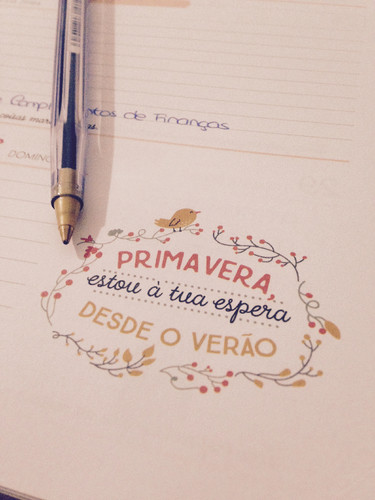 de Finanças
DOMINGO
PRIMAVERA,
estou à tua espera
DESDE O VERÃO